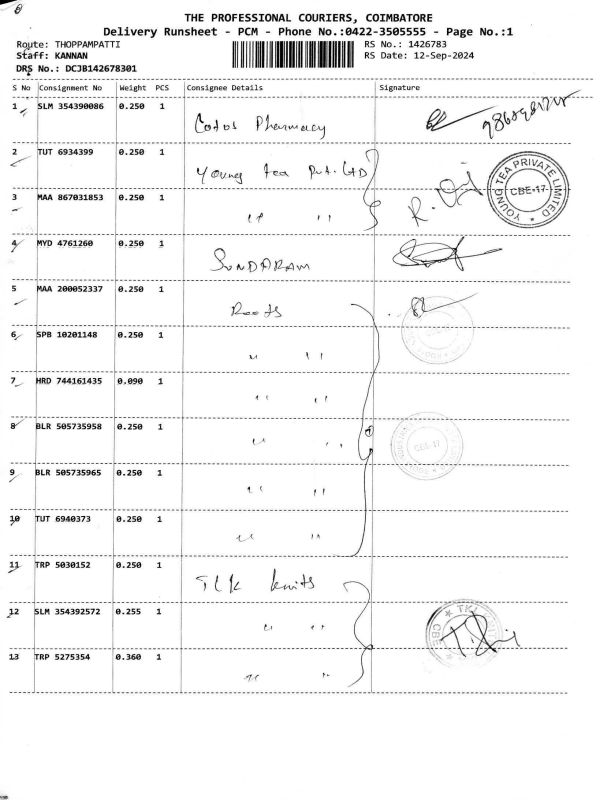 THE PROFESSIONAL COURIERS, COIMBATORE
Delivery Runsheet - PCM - Phone No.:0422-3505555 - Page No.:1
Route: THOPPAMPATTI RS No.: 1426783
Staff: KANNAN RS Date: 12-Sep-2024
DRS No.: DCJB142678301
S No Consignment No Weight PCS Consignee Details Signature
1 SLM 354390086 0.250 1 Cotos Pharmacy
2 TUT 6934399 0.250 1 Young tea Pvt. LTD
YOUNG TEA PRIVATE LIMITED
CBE-17
3 MAA 867031853 0.250 1 " "
4 MYD 4761260 0.250 1 SUNDARAM
5 MAA 200052337 0.250 1 Roots
6 SPB 10201148 0.250 1 " "
7 HRD 744161435 0.090 1 " "
8 BLR 505735958 0.250 1 " "
CBE-17
9 BLR 505735965 0.250 1 " "
10 TUT 6940373 0.250 1 " "
11 TRP 5030152 0.250 1 TLK knits
12 SLM 354392572 0.255 1 " "
13 TRP 5275354 0.360 1 " "